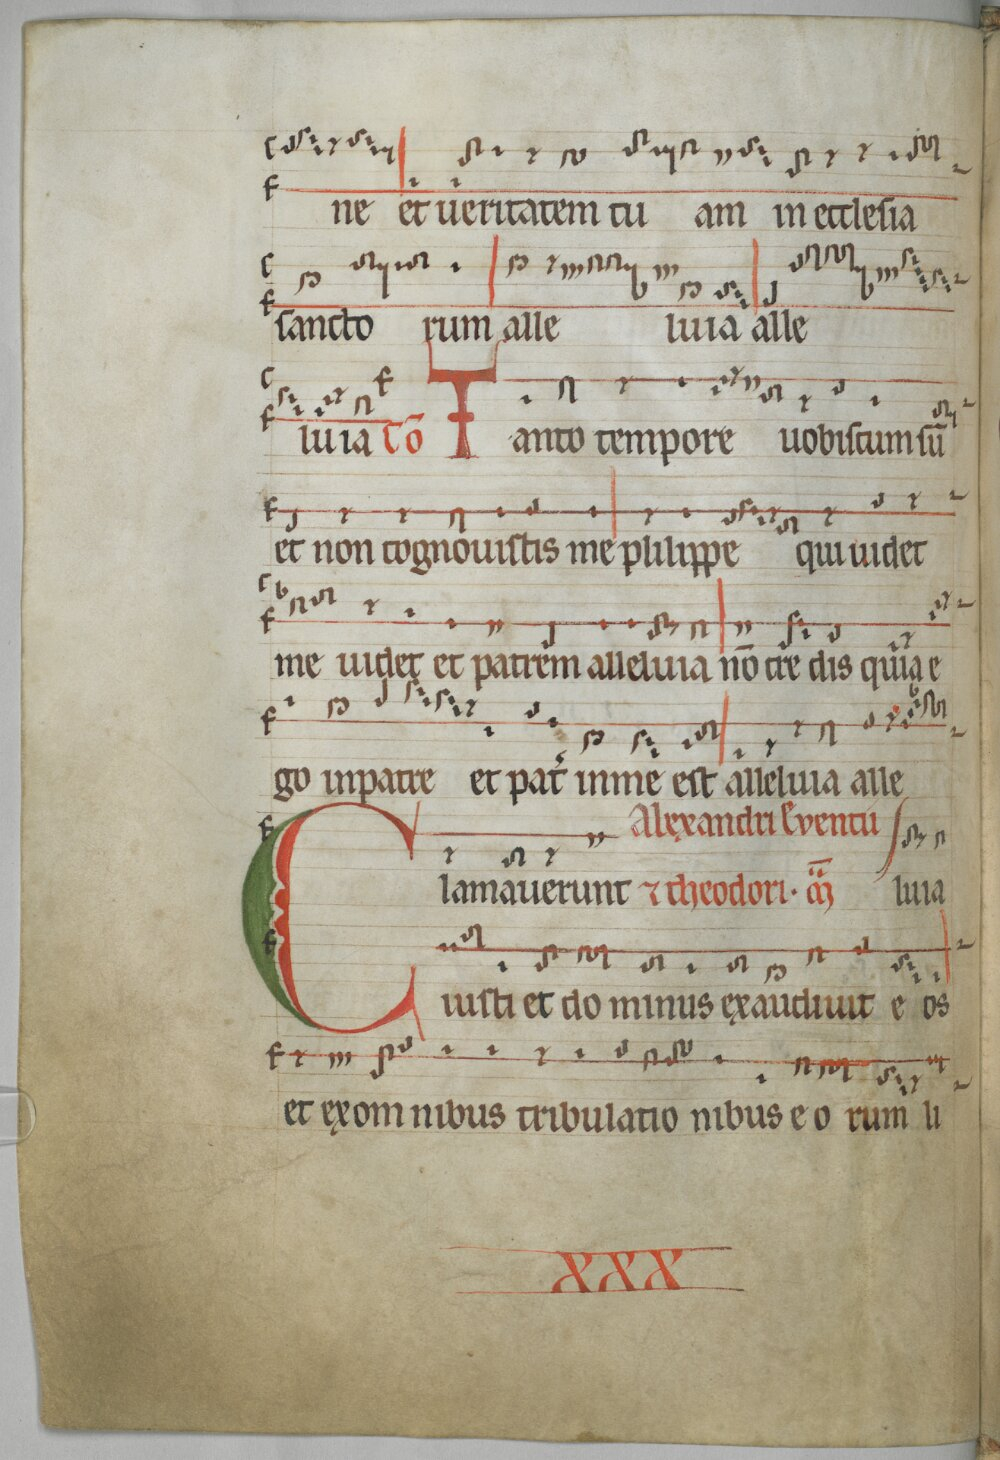 ne et ueritatem tu am in ecclesia
sancto rum alle luia alle
luia Cō Tanto tempore uobiscum sū
et non cognouistis me philippe qui uidet
me uidet et patrem alleluia nō cre dis quia e
go in patre et pat in me est alleluia alle
Alexandri Eventii
Clamauerunt ⁊ theodori. luia
iusti et do minus exaudiuit e os
et ex om nibus tribulatio nibus e o rum li
XXX